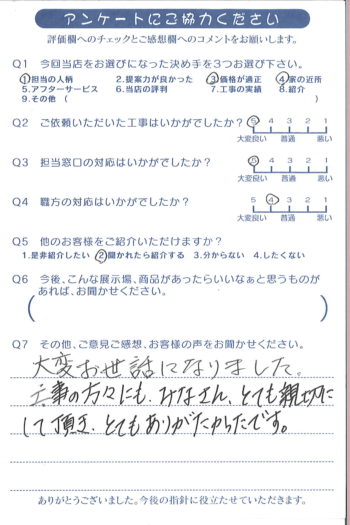 アンケートにご協力ください
評価欄へのチェックとご感想欄へのコメントをお願いします。
Q1 今回当店をお選びになった決め手を3つお選び下さい。
①担当の人柄 2.提案力が良かった ③価格が適正 ④家の近所
5.アフターサービス 6.当店の評判 7.工事の実績 8.紹介
9.その他( )
Q2 ご依頼いただいた工事はいかがでしたか? 5 4 3 2 1
大変良い 普通 悪い
Q3 担当窓口の対応はいかがでしたか? 5 4 3 2 1
大変良い 普通 悪い
Q4 職方の対応はいかがでしたか? 5 4 3 2 1
大変良い 普通 悪い
Q5 他のお客様をご紹介いただけますか?
1.是非紹介したい ②聞かれたら紹介する 3.分からない 4.したくない
Q6 今後、こんな展示場、商品があったらいいなぁと思うものが
あれば、お聞かせください。
( )
Q7 その他、ご意見ご感想、お客様の声をお聞かせください。
大変お世話になりました。
工事の方々にも、みなさん、とても親切に
して頂き、とてもありがたかったです。
ありがとうございました。今後の指針に役立たせていただきます。